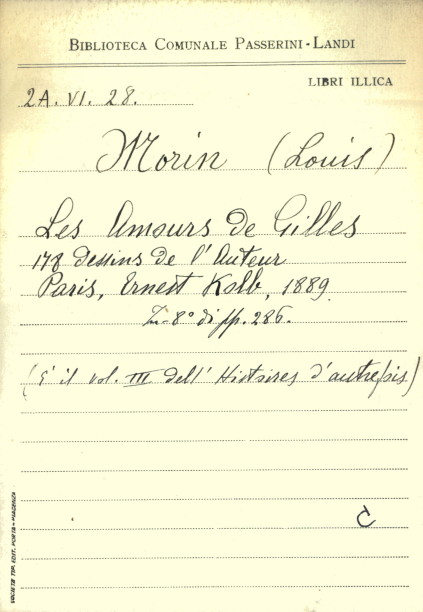 BIBLIOTECA COMUNALE PASSERINI-LANDI
LIBRI ILLICA
2A. VI. 28.
Morin (Louis)
Les Amours de Gilles
178 dessins de l'Auteur
Paris, Ernest Kolb, 1889.
In-8° di pp. 286.
(E' il vol. III dell'Histoires d'autrefois)
C
SOCIETÀ TIP. EDIT. PORTA - PIACENZA